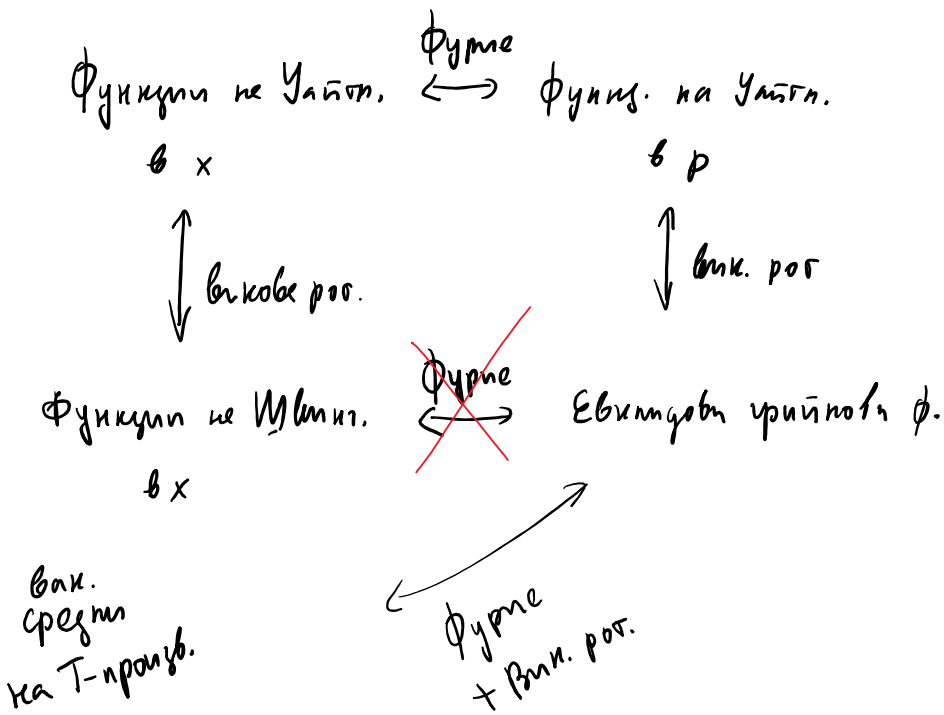 Фурие
Функции на Уайтн.
Функц. на Уайтн.
в x
в p
викова рот.
вик. рот
Фурие
Функции на Швинг.
Евклидови грийнови ф.
в x
вак.
средни
на T-произв.
Фурие
+ Вик. рот.